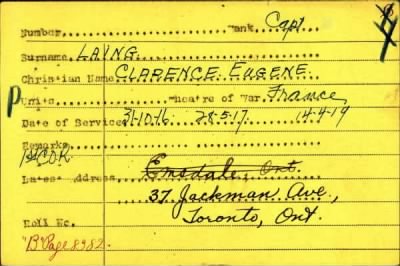 Number............Rank. Capt.
Surname. LAING.
Christian Name CLARENCE EUGENE
P Units Theatre of War. France
Date of Service 31-10-16 28.5.17 14-4-19
Remarks
1st C.O.R.
Latest Address Emsdale, Ont.
37 Jackman Ave.,
Toronto, Ont.
Roll No.
"B" Page 8982